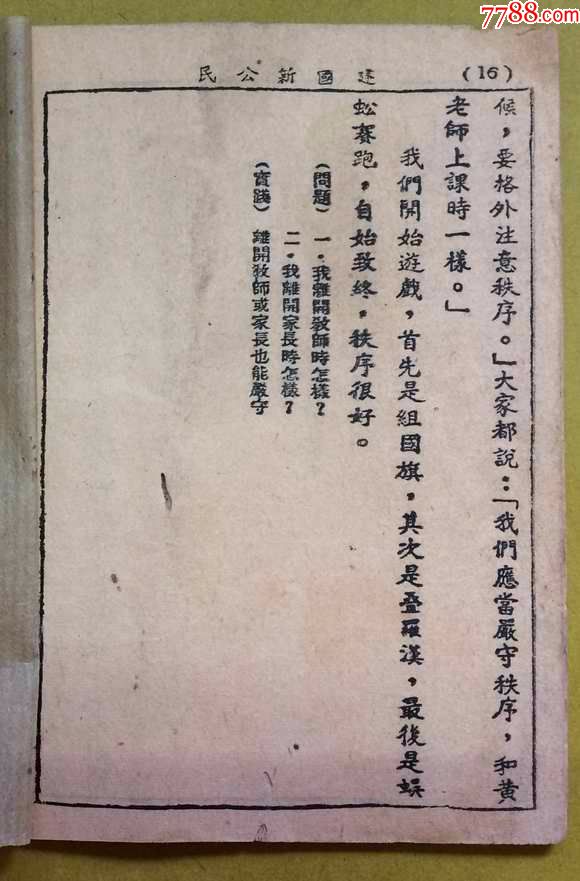 7788.com
民公新國建 (16)
候，要格外注意秩序。」大家都說：「我們應當嚴守秩序，和黃
老師上課時一樣。」
我們開始遊戲，首先是組國旗，其次是疊羅漢，最後是蜈
蚣賽跑，自始致終，秩序很好。
(問題) 一．我離開教師時怎樣？
二．我離開家長時怎樣？
(實踐) 離開教師或家長也能嚴守